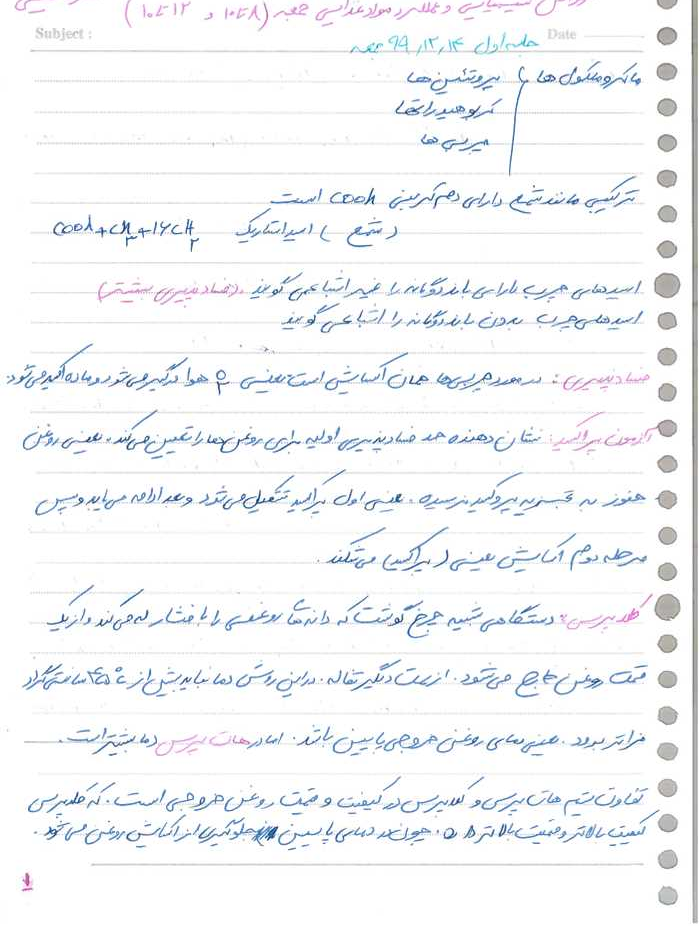 شیمیایی و عملکرد مواد غذایی جمعه (۸ تا ۱۰ و ۱۲ تا ۱۰)
Subject :
Date
جلسه اول ۹۹,۱۲,۱۴ جمعه
ماکرومولکول ها } پروتئین ها
کربوهیدراتها
چربی ها
ترکیبی مانند شمع دارای دهم کربنی COOH است
(شمع) اسید استاریک COOH + CH3 + 16CH2
اسیدهای چرب دارای باند دوگانه را غیر اشباع می گویند. (فساد پذیری بیشتر)
اسیدهای چرب بدون باند دوگانه را اشباع می گویند
فساد پذیری: در مورد چربی ها همان اکسایش است یعنی O2 هوا درگیر می شود و ماده اکسید می شود.
آزمون پراکسید: نشان دهنده حد فساد پذیری اولیه برای روغن ها را تعیین می کند. یعنی روغن
هنوز به تجزیه پروکسید نرسیده. یعنی اول پراکسید تشکیل می شود و بعد ادامه می یابد و سپس
مرحله دوم اکسایش یعنی (پراکسید) می شکند.
کلد پرس: دستگاهی شبیه چرخ گوشت که دانه های روغنی را با فشار له می کند و از یک
قسمت روغن خارج می شود. از سمت دیگر تفاله. در این روش دما نباید بیش از ۴۵° سانتی گراد
فراتر برود. یعنی دمای روغن خروجی پایین باشد. اما در هات پرس دما بیشتر است.
تفاوت سیستم هات پرس و کلد پرس در کیفیت و قیمت روغن خروجی است. که کلد پرس
کیفیت بالاتر و قیمت بالاتر دارد. چون در دمای پایین جلوگیری از اکسایش روغن می شود.